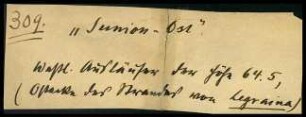 309.
„Sunion-Ost".
Westl. Ausläufer der Höhe 64.5,
(Ostecke des Strandes von Legraina)